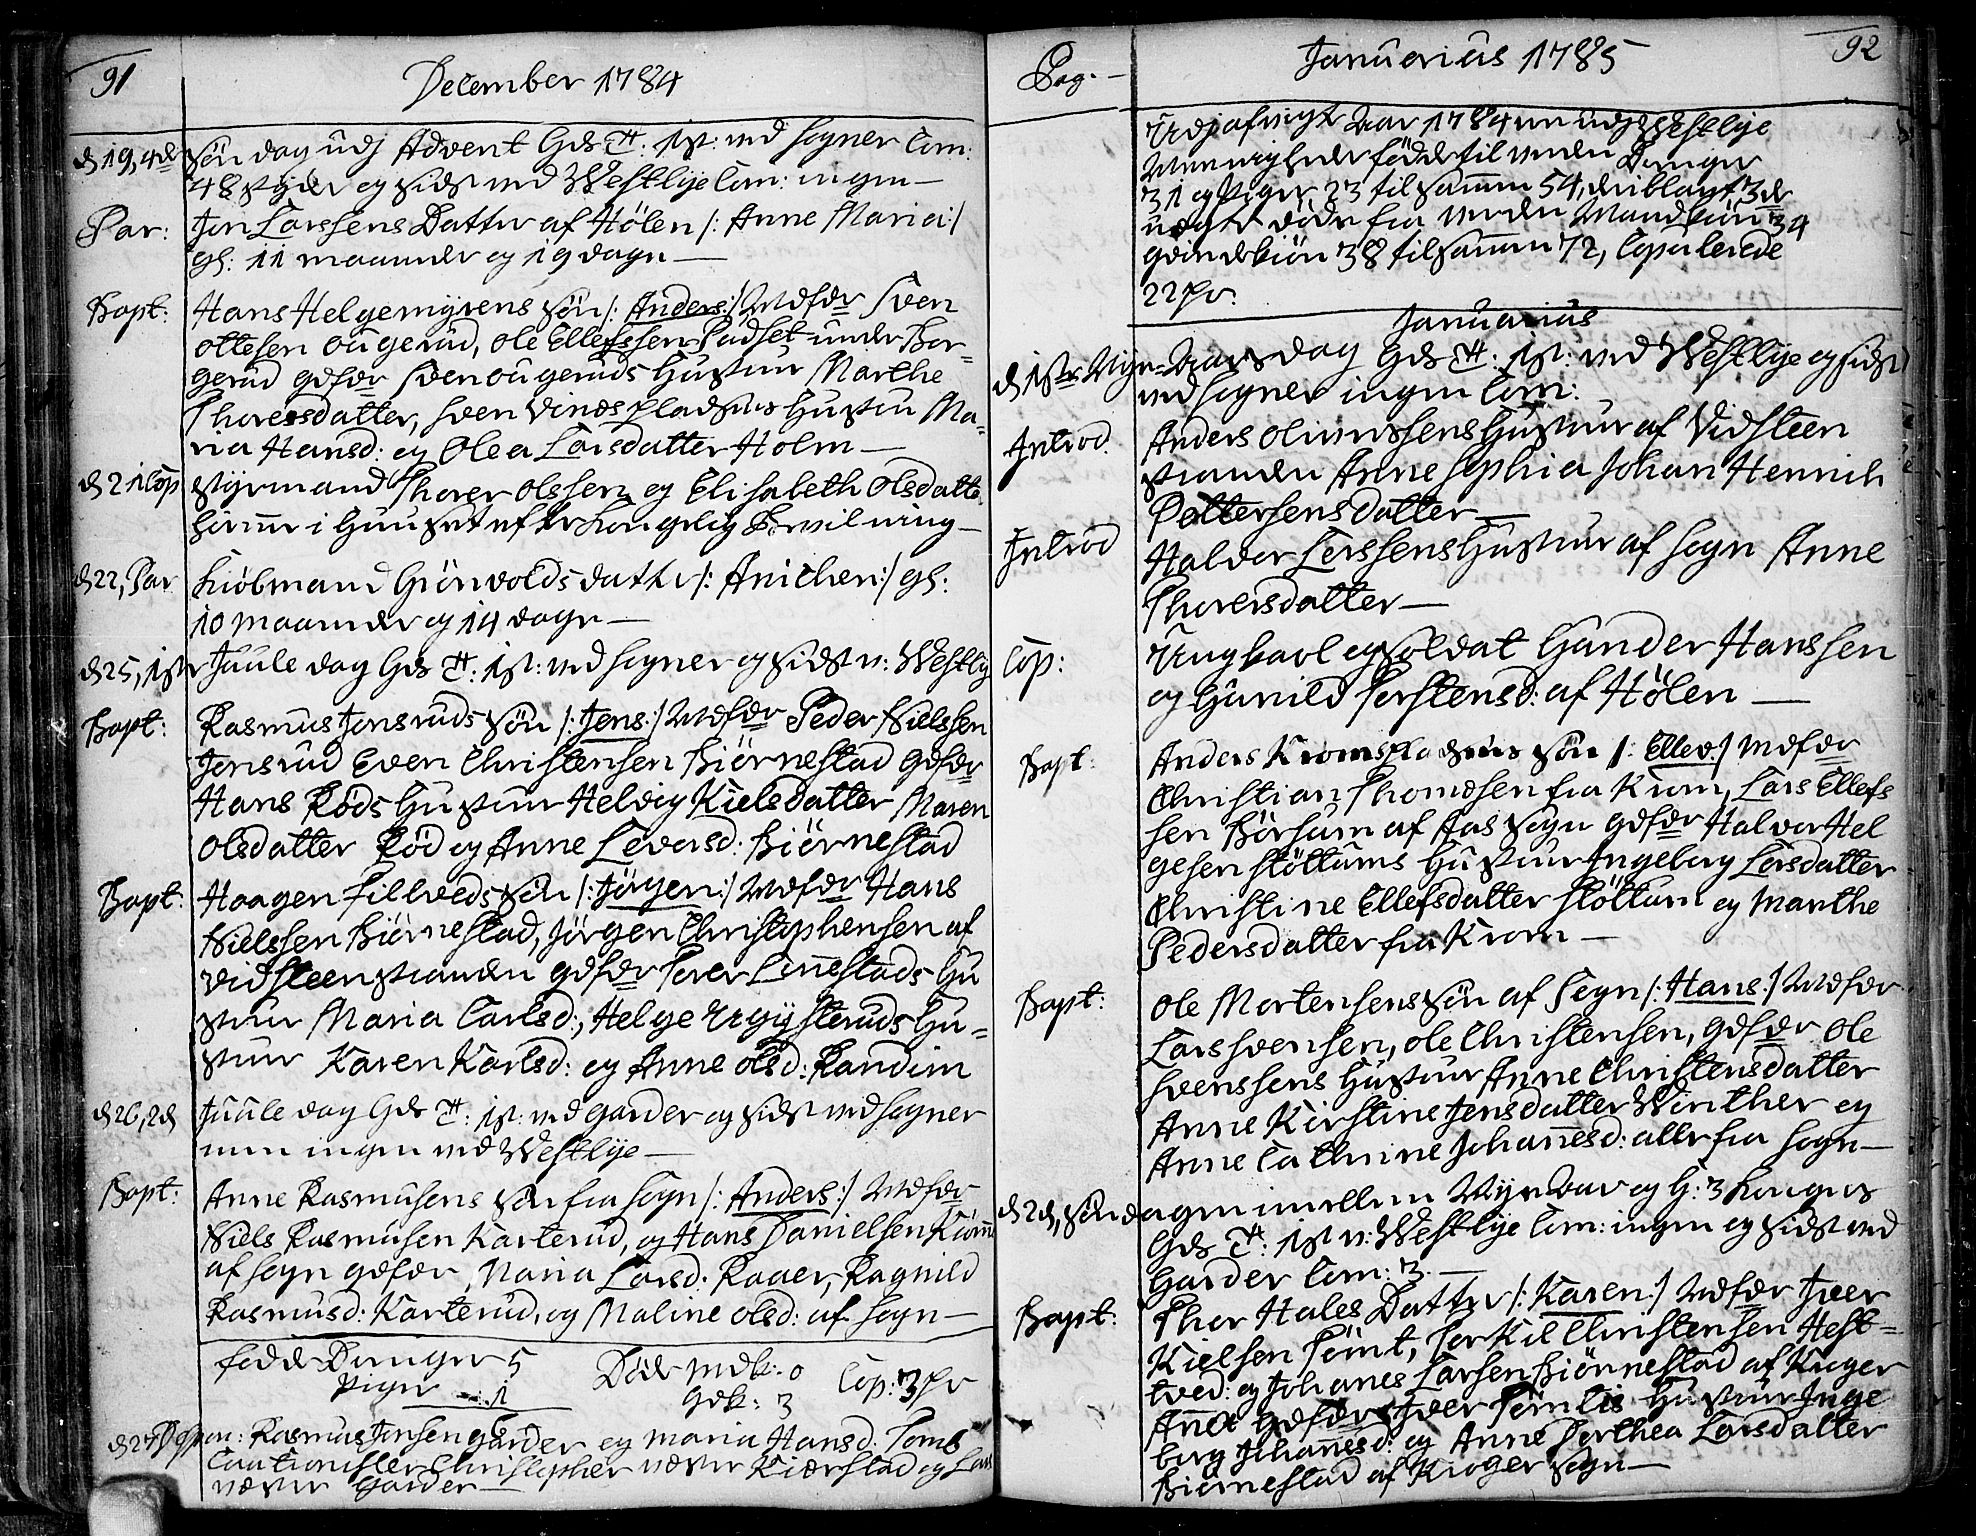 91
December 1784
d 19, 4de Søndag udj Advent Gds T: 1st: ved Sogner Com:
48 styker og sidst ved Westbye Com: ingen —
Par: Jon Larssens Datter af Hölen /: Anne Maria :/
gl: 11 maaneder og 19 dage —
Bapt: Hans Helgemyrens Sön /: Anders :/ Mdfær Sven
Ottesen Ougerud, Ole Ellefssen Padset under Bor=
gerud Qdfær Sven Ougeruds Hustrue Marthe
Thoresdatter, Sven Vindspladsens Hustru Ma=
ria Hansd: og Olea Larsdatter Holm —
d 21 Cop Styrmand Thorer Olssen og Elisabeth Olsdatter
hiemme i Huuset efter kongelig Bevilning —
d 22, Par Kiöbmand Grönvolds datter /: Anichen :/ gl:
10 maaneder og 14 dage —
d 25, 1ste Juule dag Gds T: 1st: ved Sogner og sidst v: Westby
Bapt: Rasmus Jonsruds Sön /: Jens :/ Mdfær Peder Nielssen
Jonsrud Even Christensen Biörnestad Qdfær
Hans Röds Hustrue Helvig Kielsdatter Maren
Olsdatter Röd og Anne Leversd: Biörnestad
Bapt: Haagen Fillveds Sön /: Jörgen :/ Mdfær Hans
Nielssen Biörnestad, Jörgen Christophensen af
Vidsteenstranden Qdfær Torer Linnestads Hu
strue Maria Carlsd:, Helge Hu=
strue Karen Karlsd: og Anne Olsd: Randim
d 26, 2d Juule dag Gds T: 1st: ved Garder og sidst ved Sogner
men ingen ved Westbye —
Bapt: Anne Rasmusens Sön fra Sogn /: Anders :/ Mdfær
Niels Rasmusen Karterud, og Hans Danielsen
af Sogn Qdfær Maria Larsd. Raaer, Ragnild
Rasmusd: Karterud, og Maline Olsd: af Sogn —
fødde Drenger 5 Döde Mdk: 0 Cop: 3 Par
Piger — 1 Qdk: 3
Rasmus Jensen Garder og Maria Hansd: Tomb
Cautionister Christopher Næver Kierstad og Lars
Næver Garder —
Pag. —
Januarius 1785
92
Udj afvigte Aar 1784 ere udj Westbye
Menigheder födde til verden Drenger
31 og Piger 23 tilsamen 54, deriblant 3de
uegte döde fra verden Mandkiön 34
Qvindekiön 38 tilsamen 72, Copulerede
22 Par.
Januarius
d 1ste Nye-Aarsdag Gds T: 1st: ved Westbye og sidst
ved Sogner ingen Com:
Introd. Anders Oliverssens Hustrue af Vidsteen
stranden Anne Sophia Johan Henrich
Pettersens datter —
Introd Halvor Larssens Hustrue af Sogn Anne
Thoresdatter —
Cop: Ungkarl og Soldat Gunder Hanssen
og Gunild Torstensd: af Hölen —
Bapt: Anders Kromspladsens Sön /: Ellev :/ Mdfær
Christian Thomdsen fra Krom, Lars Ellefs
sen Börsum af Aas Sogn Qdfær Halvor Hel
gesen Stöttums Hustrue Ingeborg Larsdatter
Christine Ellefsdatter Stöttum og Marthe
Pedersdatter fra Krom —
Bapt: Ole Mortensens Sön af Sogn /: Hans :/ Mdfær
Lars Svensen, Ole Christensen, Qdfær Ole
Svenssens Hustrue Anne Christensdatter
Anne Kirstine Jensdatter Winther og
Anne Cathrine Johannesd: alle fra Sogn —
d 2d, Söndagen imellem Nye Aar og H: 3 Konger
Gds T: 1st v: Westbye Com: ingen og sidst ved
Garder Com: 3. —
Bapt: Thor Hales Datter /: Karen :/ Mdfær Iver
Kielsen Tömt, Torkil Christensen Heft=
tved: og Johanes Larsen Biörnestad af Kroger
Annex Qdfær Iver Hustrue Inge
borg Johannesd: og Anne Dorthea Larsdatter
Biörnestad af Kroger Sogn —